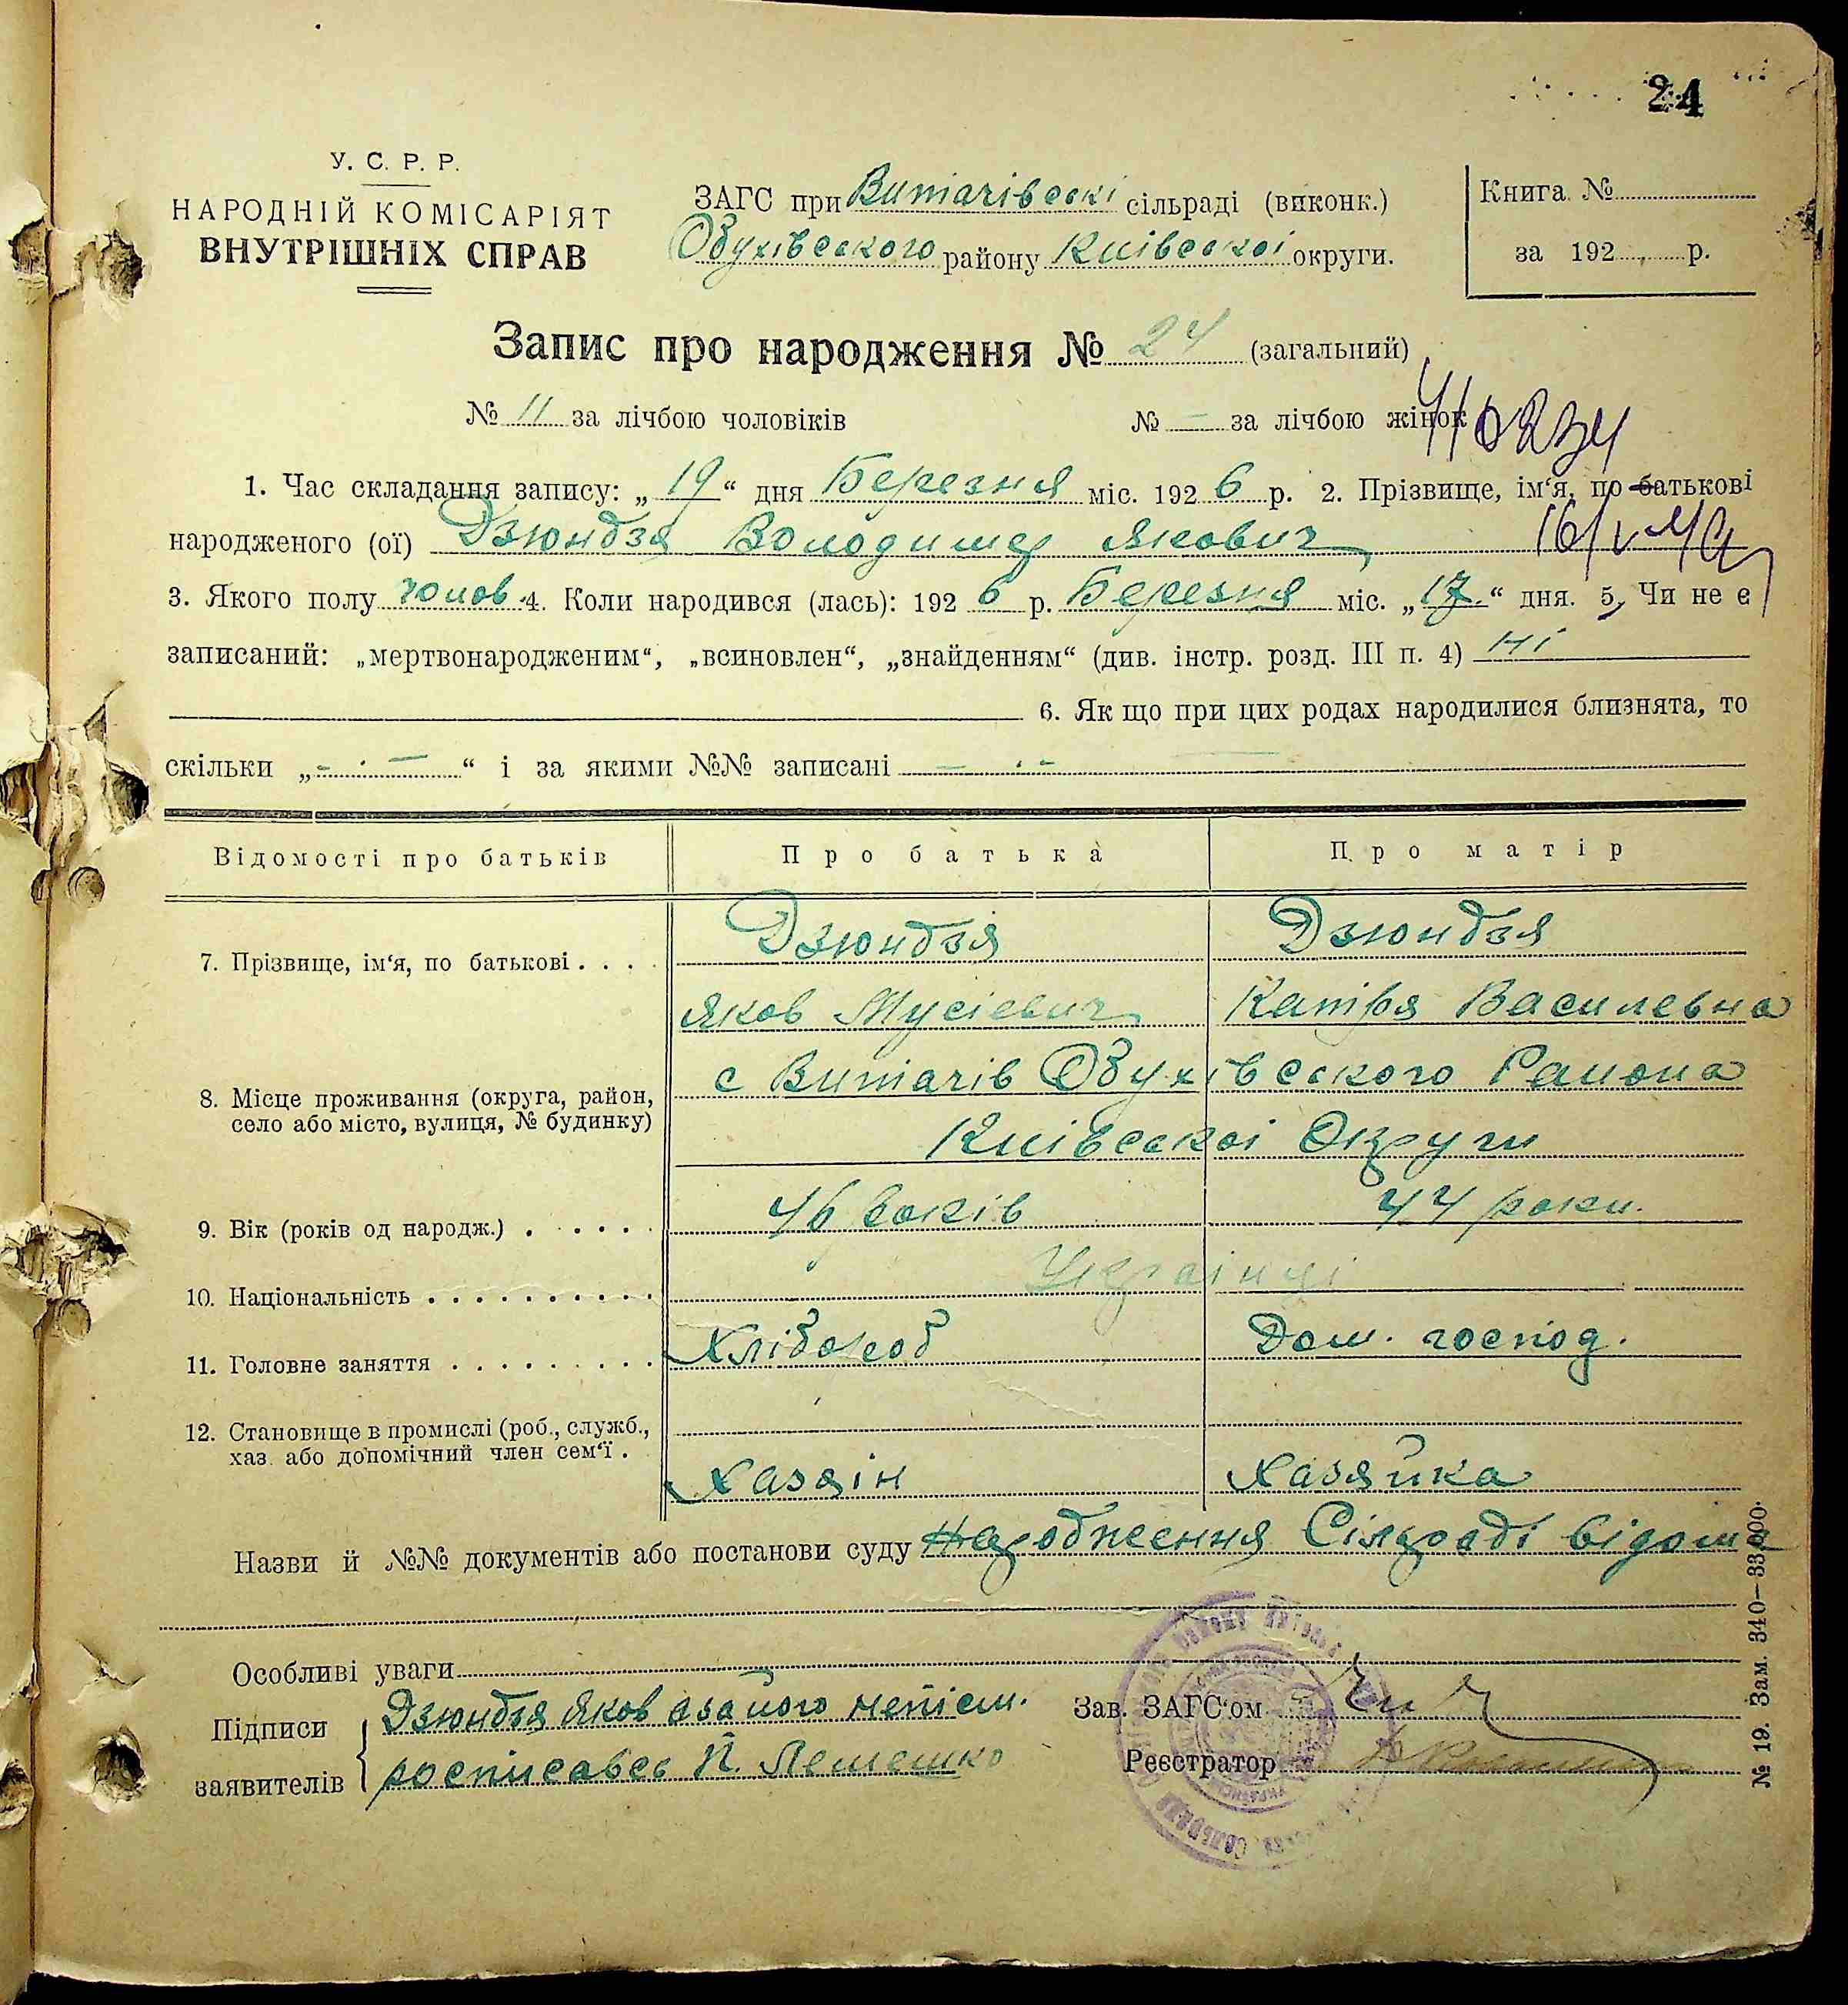 24
У. С. Р. Р.
НАРОДНІЙ КОМІСАРІЯТ
ВНУТРІШНІХ СПРАВ
ЗАГС при Витачівескі сільраді (виконк.)
Обухівеского району Київескоі округи.
Книга №
за 192 р.
Запис про народження № 24 (загальний)
№ 11 за лічбою чоловіків № — за лічбою жінок
1. Час складання запису: „19“ дня Березня міс. 1926 р. 2. Прізвище, ім‘я, по батькові
народженого (ої) Дзюндзя Володимер Якович
3. Якого полу чолов. 4. Коли народився (лась): 1926 р. Березня міс. „17.“ дня. 5. Чи не є
записаний: „мертвонародженим“, „всиновлен“, „знайденням“ (див. інстр. розд. III п. 4) ні
6. Як що при цих родах народилися близнята, то
скільки „— · —“ і за якими №№ записані —
Відомості про батьків Про батька Про матір
7. Прізвище, ім‘я, по батькові . . . . Дзюндзя Дзюндзя
Яков Мусієвич Катря Василевна
8. Місце проживання (округа, район,
село або місто, вулиця, № будинку)
с Витачів Обухівеского Района
Київескоі Округи
9. Вік (років од народж.) . . . . . 46 років 44 роки.
10. Національність . . . . . . . . . . Українці
11. Головне заняття . . . . . . . . . Хлібороб Дом. господ.
12. Становище в промислі (роб., служб.,
хаз. або допомічний член сем‘ї .
Хазяін Хазяйка
Назви й №№ документів або постанови суду Народження Сілраді відоме
Особливі уваги
Підписи
заявителів
Дзюндзя Яков аза його непісм.
росписавсь Й. Лемешко
Зав. ЗАГС‘ом
Реєстратор
№ 19. Зам. 340—33000.